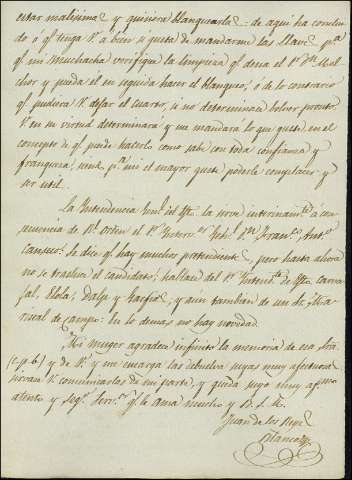 estar malisima y quisiera blanquearla = de aqui ha
do q.e tenga V. a bien si gusta de mandarme las llaves p.a
q.e mi Muchacha verifique la limpieza q.e desea el S.r D.n Mel
chor y pueda el en seguida hacer el blanqueo, ó de lo contrario
q.e pudiera V. dejar el cuarto, si no determinara bolver pronto
V. en su virtud determinará y me mandara lo que guste, en el
concepto de q.e puede hacerlo como sabe con toda confianza y
franqueza, siendo p.a mi el mayor gusto poderle complacer y
ser util.
La Intendencia de la sirve interinam.te á con
secuencia de R.l orden el S.r D.n Fran.co Ant.o
se dice q.e hay muchos pretendientes, pero hasta ahora
no se trasluce el candidato; hablase del S.r Intend.te de Carva
jal, Elola, y y aun tambien de un Ma
riscal de campo: En lo demas no hay novedad.
Mi muger agradece infinito la memoria de esa Sra
(c. p. b.) y de V. y me encarga las debuelva suyas muy afectuosas
sirvase V. comunicarlas de mi parte, y queda suyo muy af.mo
atento y seg.o Serv.or q.e le ama mucho y B. S. M.
Juan de los Reyes
Blanco